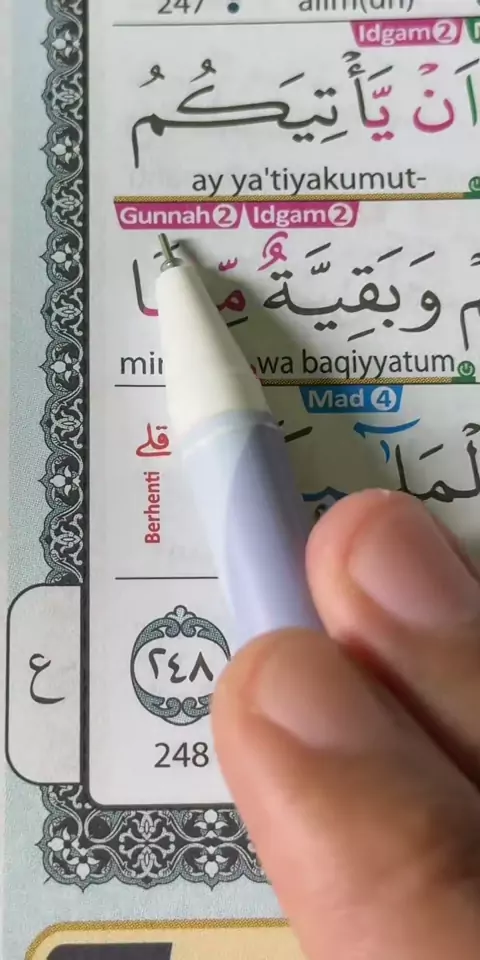 247
alim(un)
Idgam 2
اَنْ يَّأْتِيَكُمُ
ay ya'tiyakumut-
Idgam 2 Gunnah 2
وَبَقِيَّةٌ مِّ
wa baqiyyatum
Mad 4
قلى
Berhenti
ع
٢٤٨
248